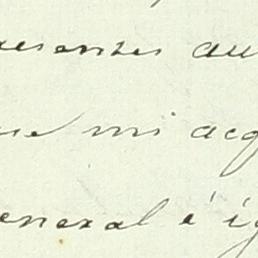 resentes au
se mi acq
eneral é ig